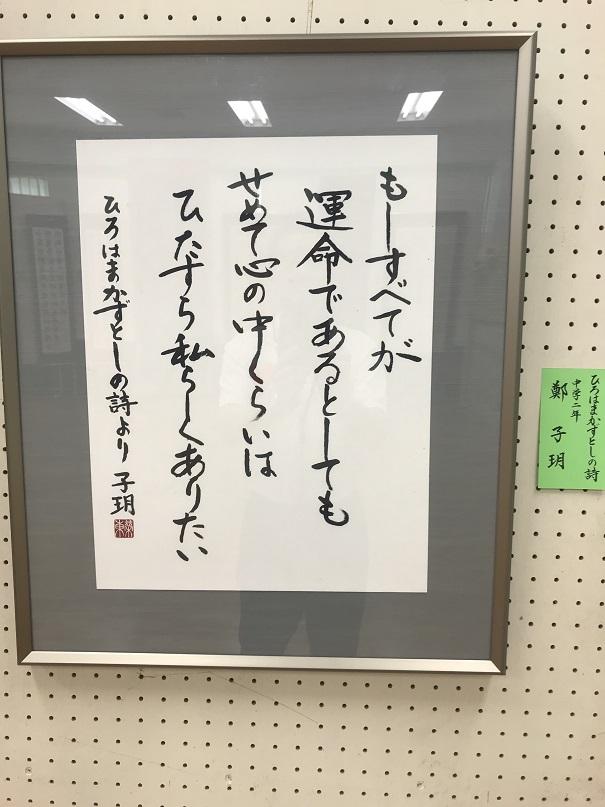 もしすべてが
運命であるとしても
せめて心の中くらいは
ひたすら私らしくありたい
ひろはまかずとしの詩より 子玥
ひろはまかずとしの詩
中学二年
鄭 子玥